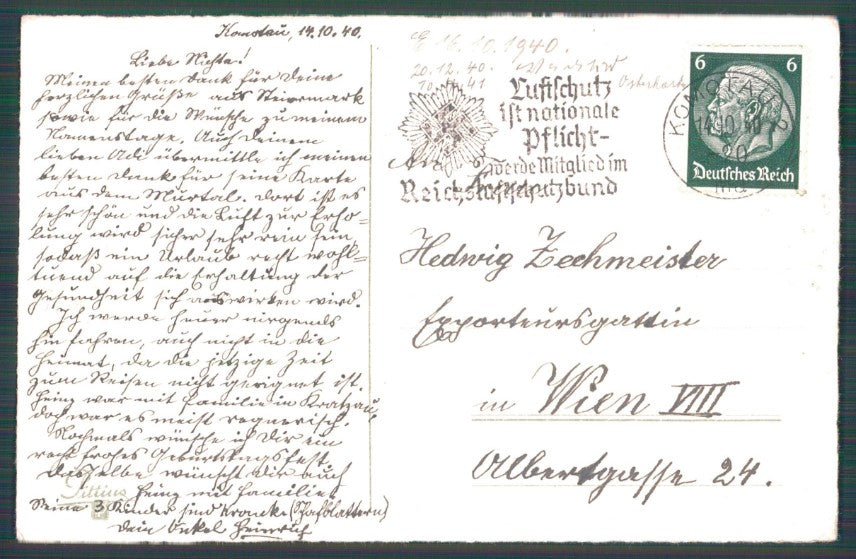 Komotau, 14.10.40.
Liebe Nichte!
Meinen besten Dank für Deine
herzlichen Grüße aus Steiermark
sowie für die Wünsche zu meinem
Namenstage. Auch Deinem
lieben Adi übermittle ich meinen
besten Dank für seine Karte
aus dem Murtal. Dort ist es
sehr schön und die Luft zur Erho=
lung wird sicher sehr rein sein,
sodaß ein Urlaub recht wohl=
tuend auf die Erhaltung der
Gesundheit sich auswirken wird.
Ich werde heuer nirgends
hin fahren, auch nicht in die
Heimat, da die jetzige Zeit
zum Reisen nicht geeignet ist.
Heinz war mit Familie in Kratzau,
doch war es meist regnerisch.
Nochmals wünsche ich Dir ein
recht frohes Geburtstagsfest.
Dasselbe wünscht Dir auch
Heinz mit Familie.
Seine 3 Kinder sind krank (Schafblattern)
Dein Onkel Heinrich
E 16.10.1940.
20.12.40.
41
Luftschutz
ist nationale
Pflicht-
werde Mitglied im
Reichsluftschutzbund
KOMOTAU
14.10.40
20
6 6
Deutsches Reich
An
Hedwig Zechmeister
Exporteursgattin
in Wien VIII
Albertgasse 24.